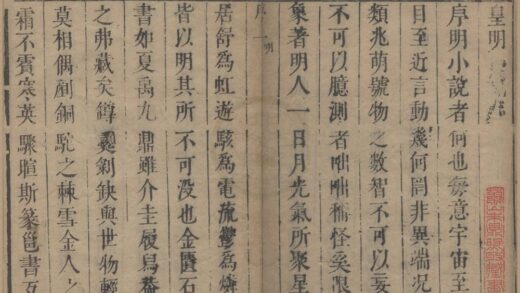 皇明
序明小說者何也毎意宇宙至
目至近言動幾何閒非異端况
類兆萌號物之數智不可以妄
不可以臆測者咄咄稱怪奚限
象著明人一日月光氣所聚星
序 一
居舒為虹遊駭為電為
皆以明其所不可没也金匱石
書如夏禹九鼎雖介圭履舄
之弗藏矣罇彝剝缺與世物輕
莫相偶剷銅駝之棘雪金人之
霜不寒英驟暄斯篆書互